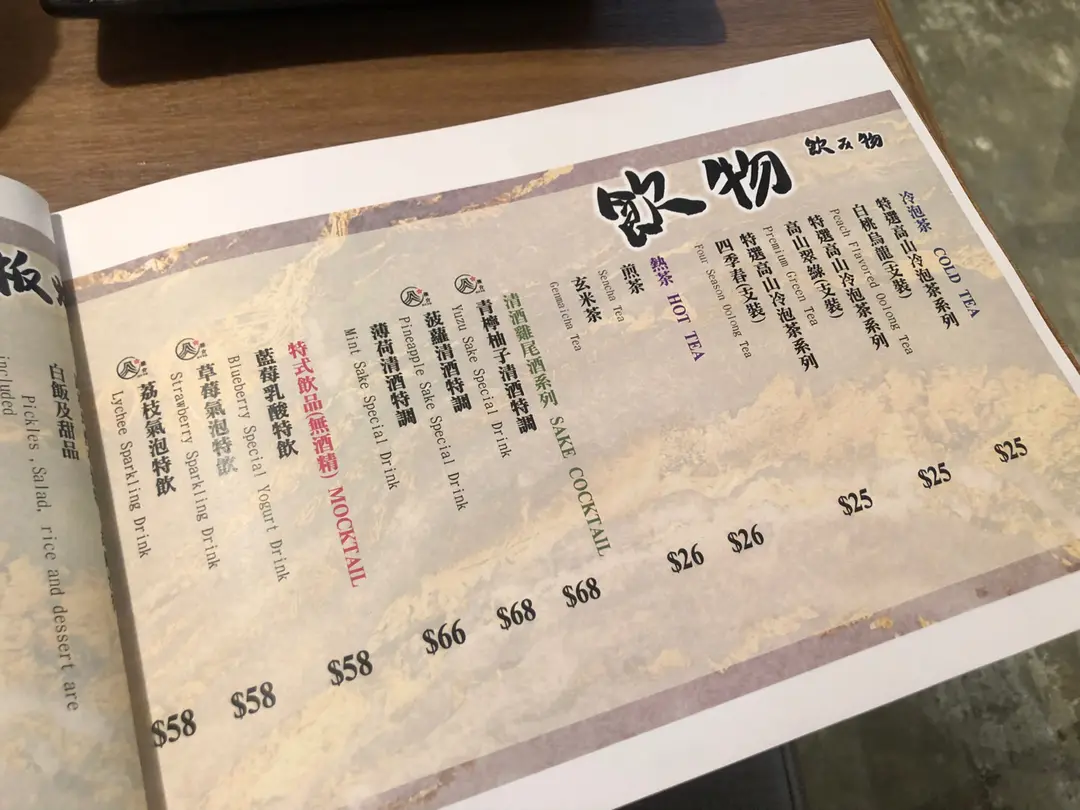 飲み物
飲物
冷泡茶 COLD TEA
特選高山冷泡茶系列
白桃烏龍(支裝)
Peach Flavored Oolong Tea
$25
特選高山冷泡茶系列
高山翠綠(支裝)
Premium Green Tea
$25
特選高山冷泡茶系列
四季春(支裝)
Four Season Oolong Tea
$25
熱茶 HOT TEA
煎茶
Sencha Tea
$26
玄米茶
Genmaicha Tea
$26
清酒雞尾酒系列 SAKE COCKTAIL
青檸柚子清酒特調
Yuzu Sake Special Drink
$68
菠蘿清酒特調
Pineapple Sake Special Drink
$68
薄荷清酒特調
Mint Sake Special Drink
$66
特式飲品(無酒精) MOCKTAIL
藍莓乳酸特飲
Blueberry Special Yogurt Drink
$58
草莓氣泡特飲
Strawberry Sparkling Drink
$58
荔枝氣泡特飲
Lychee Sparkling Drink
$58
板
白飯及甜品
Pickles ,Salad, rice and dessert are
included